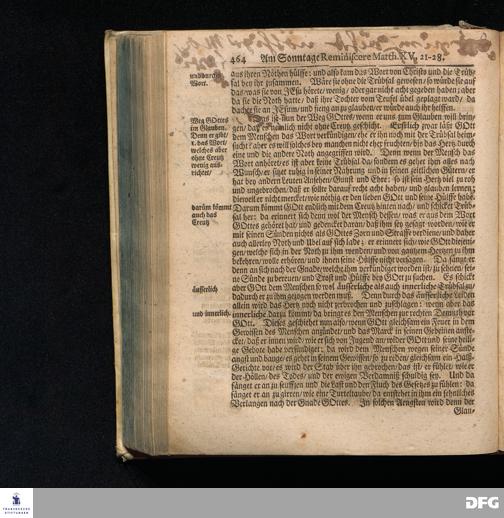 464 Am Sonntage Reminiscere Matth. XV, 21-28.
und durchs
Wort.
aus ihren Nöthen hülffe: und also kam das Wort von Christo und die Trüb-
sal bey ihr zusammen. Wäre sie ohne die Trübsal gewesen/ so würde sie auf
das/ was sie von JEsu hörete/ wenig/ oder gar nicht acht gegeben haben; aber
da sie die Noth hatte/ daß ihre Tochter vom Teufel übel geplaget ward/ da
dachte sie an JEsum/ und fieng an zu glauben/ er würde auch ihr helffen.
Weg GOttes
im Glauben.
Denn er giebt
1. das Wort/
welches aber
ohne Creutz
wenig aus-
richtet/
ist nun der Weg GOttes/ wenn er uns zum Glauben will brin-
gen/ daß es nemlich nicht ohne Creutz geschicht. Erstlich zwar läst GOtt
dem Menschen das Wort verkündigen/ ehe er ihn noch mit der Trübsal heim-
sucht: aber es will solches bey manchen nicht eher fruchten/ bis das Hertz durch
eine und die andere Noth angegriffen wird. Denn wenn der Mensch das
Wort anhöret/ es ist aber keine Trübsal da/ sondern es gehet ihm alles nach
Wunsch/ er sitzet ruhig in seiner Nahrung und in seinen zeitlichen Gütern/ er
hat bey andern Leuten Ansehen/ Gunst und Ehre: so ist sein Hertz viel zu roh
und ungebrochen/ daß er sollte darauf recht acht haben/ und glauben lernen;
dieweil er nicht mercket/ wie nöthig er den lieben GOtt und seine Hülffe habe.
darum kömmt
auch das
Creutz
Darum kömmt GOtt endlich mit dem Creutz hinten nach/ und schicket Trüb-
sal her: da erinnert sich denn wol der Mensch dessen/ was er aus dem Wort
GOttes gehöret hat/ und gedencket daran/ daß ihm sey gesagt worden/ wie er
mit seinen Sünden nichts als GOttes Zorn und Straffe verdiene/ und daher
auch allerley Noth und Ubel auf sich lade; er erinnert sich/ wie GOtt diejeni-
gen/ welche sich in der Noth zu ihm wenden/ und von gantzem Hertzen zu ihm
bekehren/ wolle erhören/ und ihnen seine Hülffe nicht versagen. Da fänget er
denn an sich nach der Gnade/ welche ihm verkündiget worden ist/ zu sehnen/ sei-
ne Sünde zu bereuen/ und Trost und Hülffe bey GOtt zu suchen. Es schickt
äusserlich
aber GOtt dem Menschen so wol äusserliche als auch innerliche Trübsal zu/
dadurch er zu ihm gezogen werden muß. Denn durch das äusserliche Leiden
allein wird das Hertz noch nicht zerbrochen und zuschlagen: wenn aber das
und innerlich.
innerliche darzu kömmt/ da bringt es den Menschen zur rechten Demuth vor
GOtt. Dieses geschiehet nun also/ wenn GOtt gleichsam ein Feuer in dem
Gewissen des Menschen anzündet/ und das Marck in seinen Gebeinen aufste-
cket/ daß er innen wird/ wie er sich von Jugend an/ wider GOtt und seine heili-
ge Gebote habe versündiget; da wird dem Menschen wegen seiner Sünde
angst und bange/ es gehet in seinem Gewissen/ so zu reden/ gleichsam ein Halß-
Gerichte vor/ es wird der Stab über ihn gebrochen/ das ist/ er fühlet/ wie er
der Höllen/ des Todes/ und der ewigen Verdamniß schuldig sey. Und da
fänget er an zu seuffzen und die Last und den Fluch des Gesetzes zu fühlen: da
fänget er an zu girren/ wie eine Turteltaube/ da entstehet in ihm ein sehnliches
Verlangen nach der Gnade GOttes. In solchen Aengsten wird denn der
Glau-
FRANCKESCHE
STIFTUNGEN
DFG